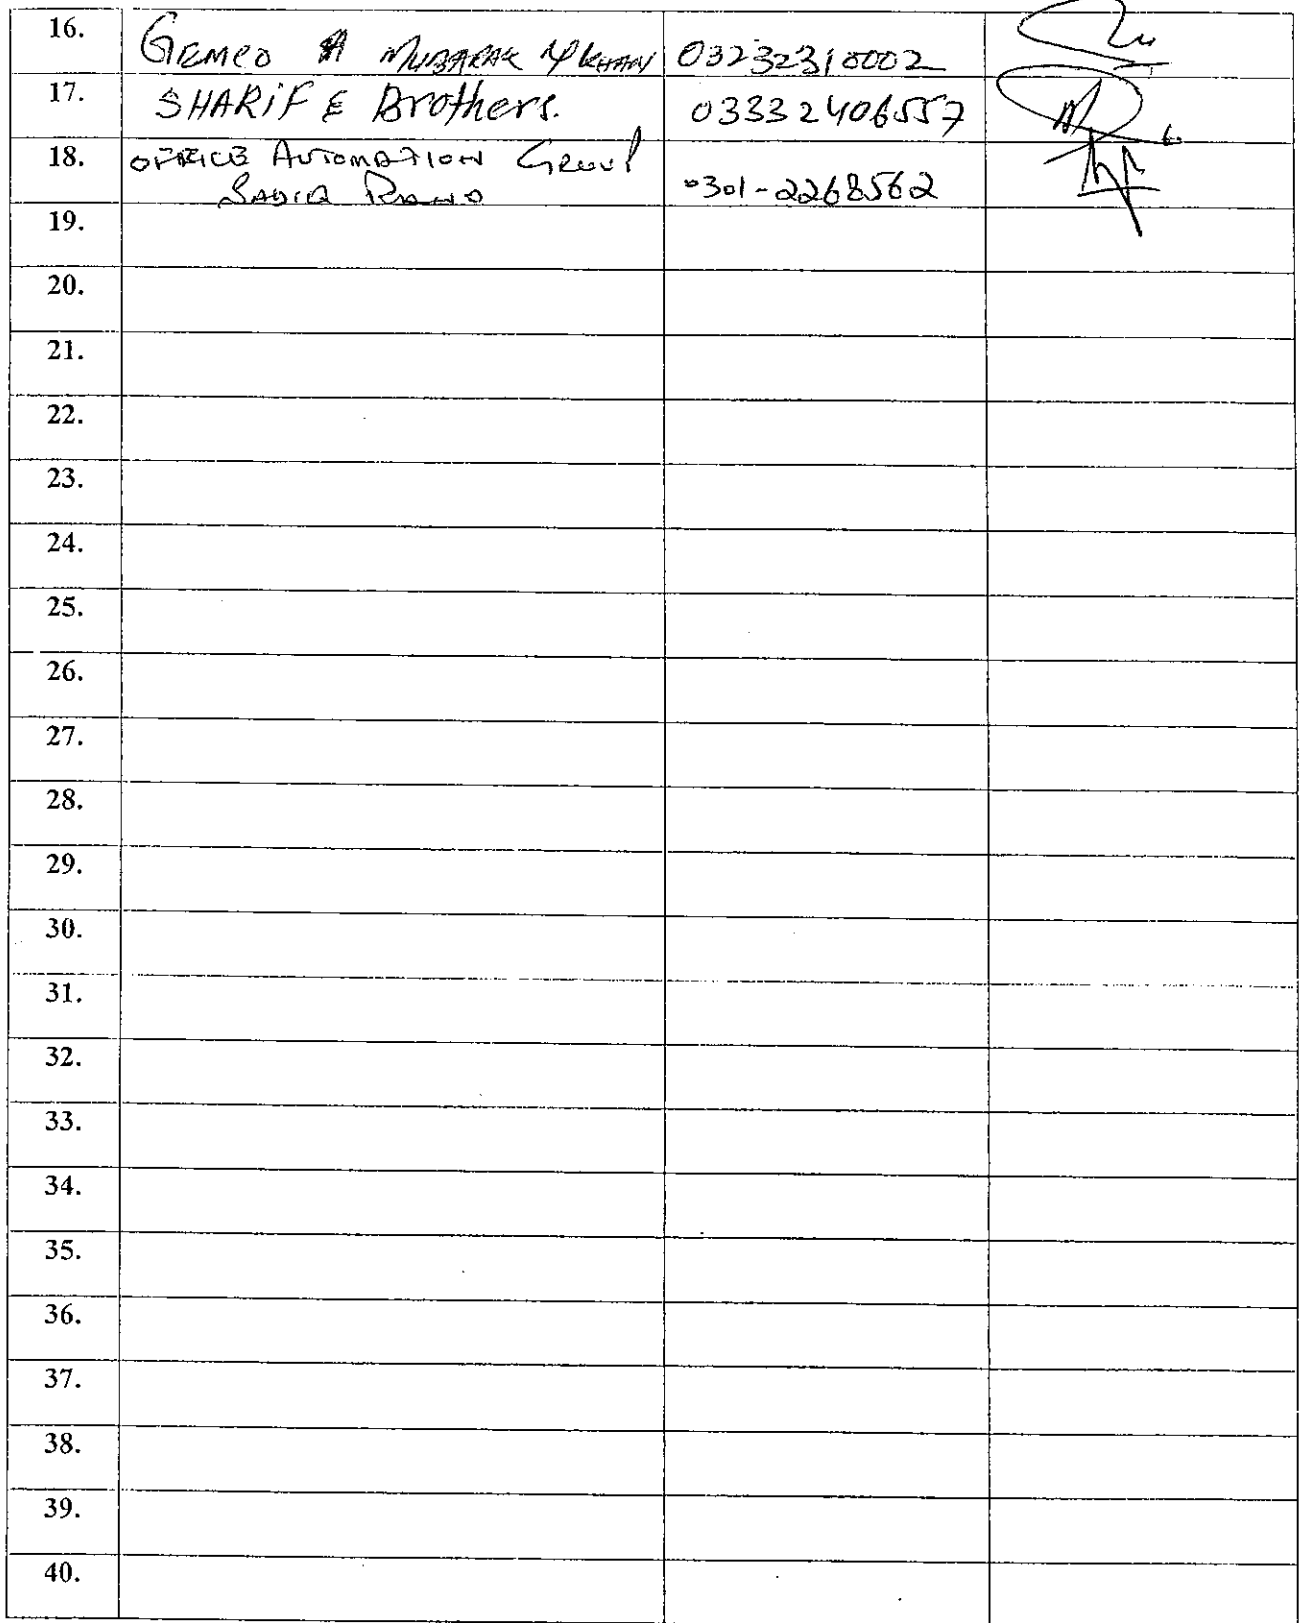 16. GEMCO MUBARAK Y KHAN 03232310002
17. SHARiF & Brothers. 03332406557
18. OFFICE AUTOMATION GROUP
SADIA 0301-2268562
19.
20.
21.
22.
23.
24.
25.
26.
27.
28.
29.
30.
31.
32.
33.
34.
35.
36.
37.
38.
39.
40.